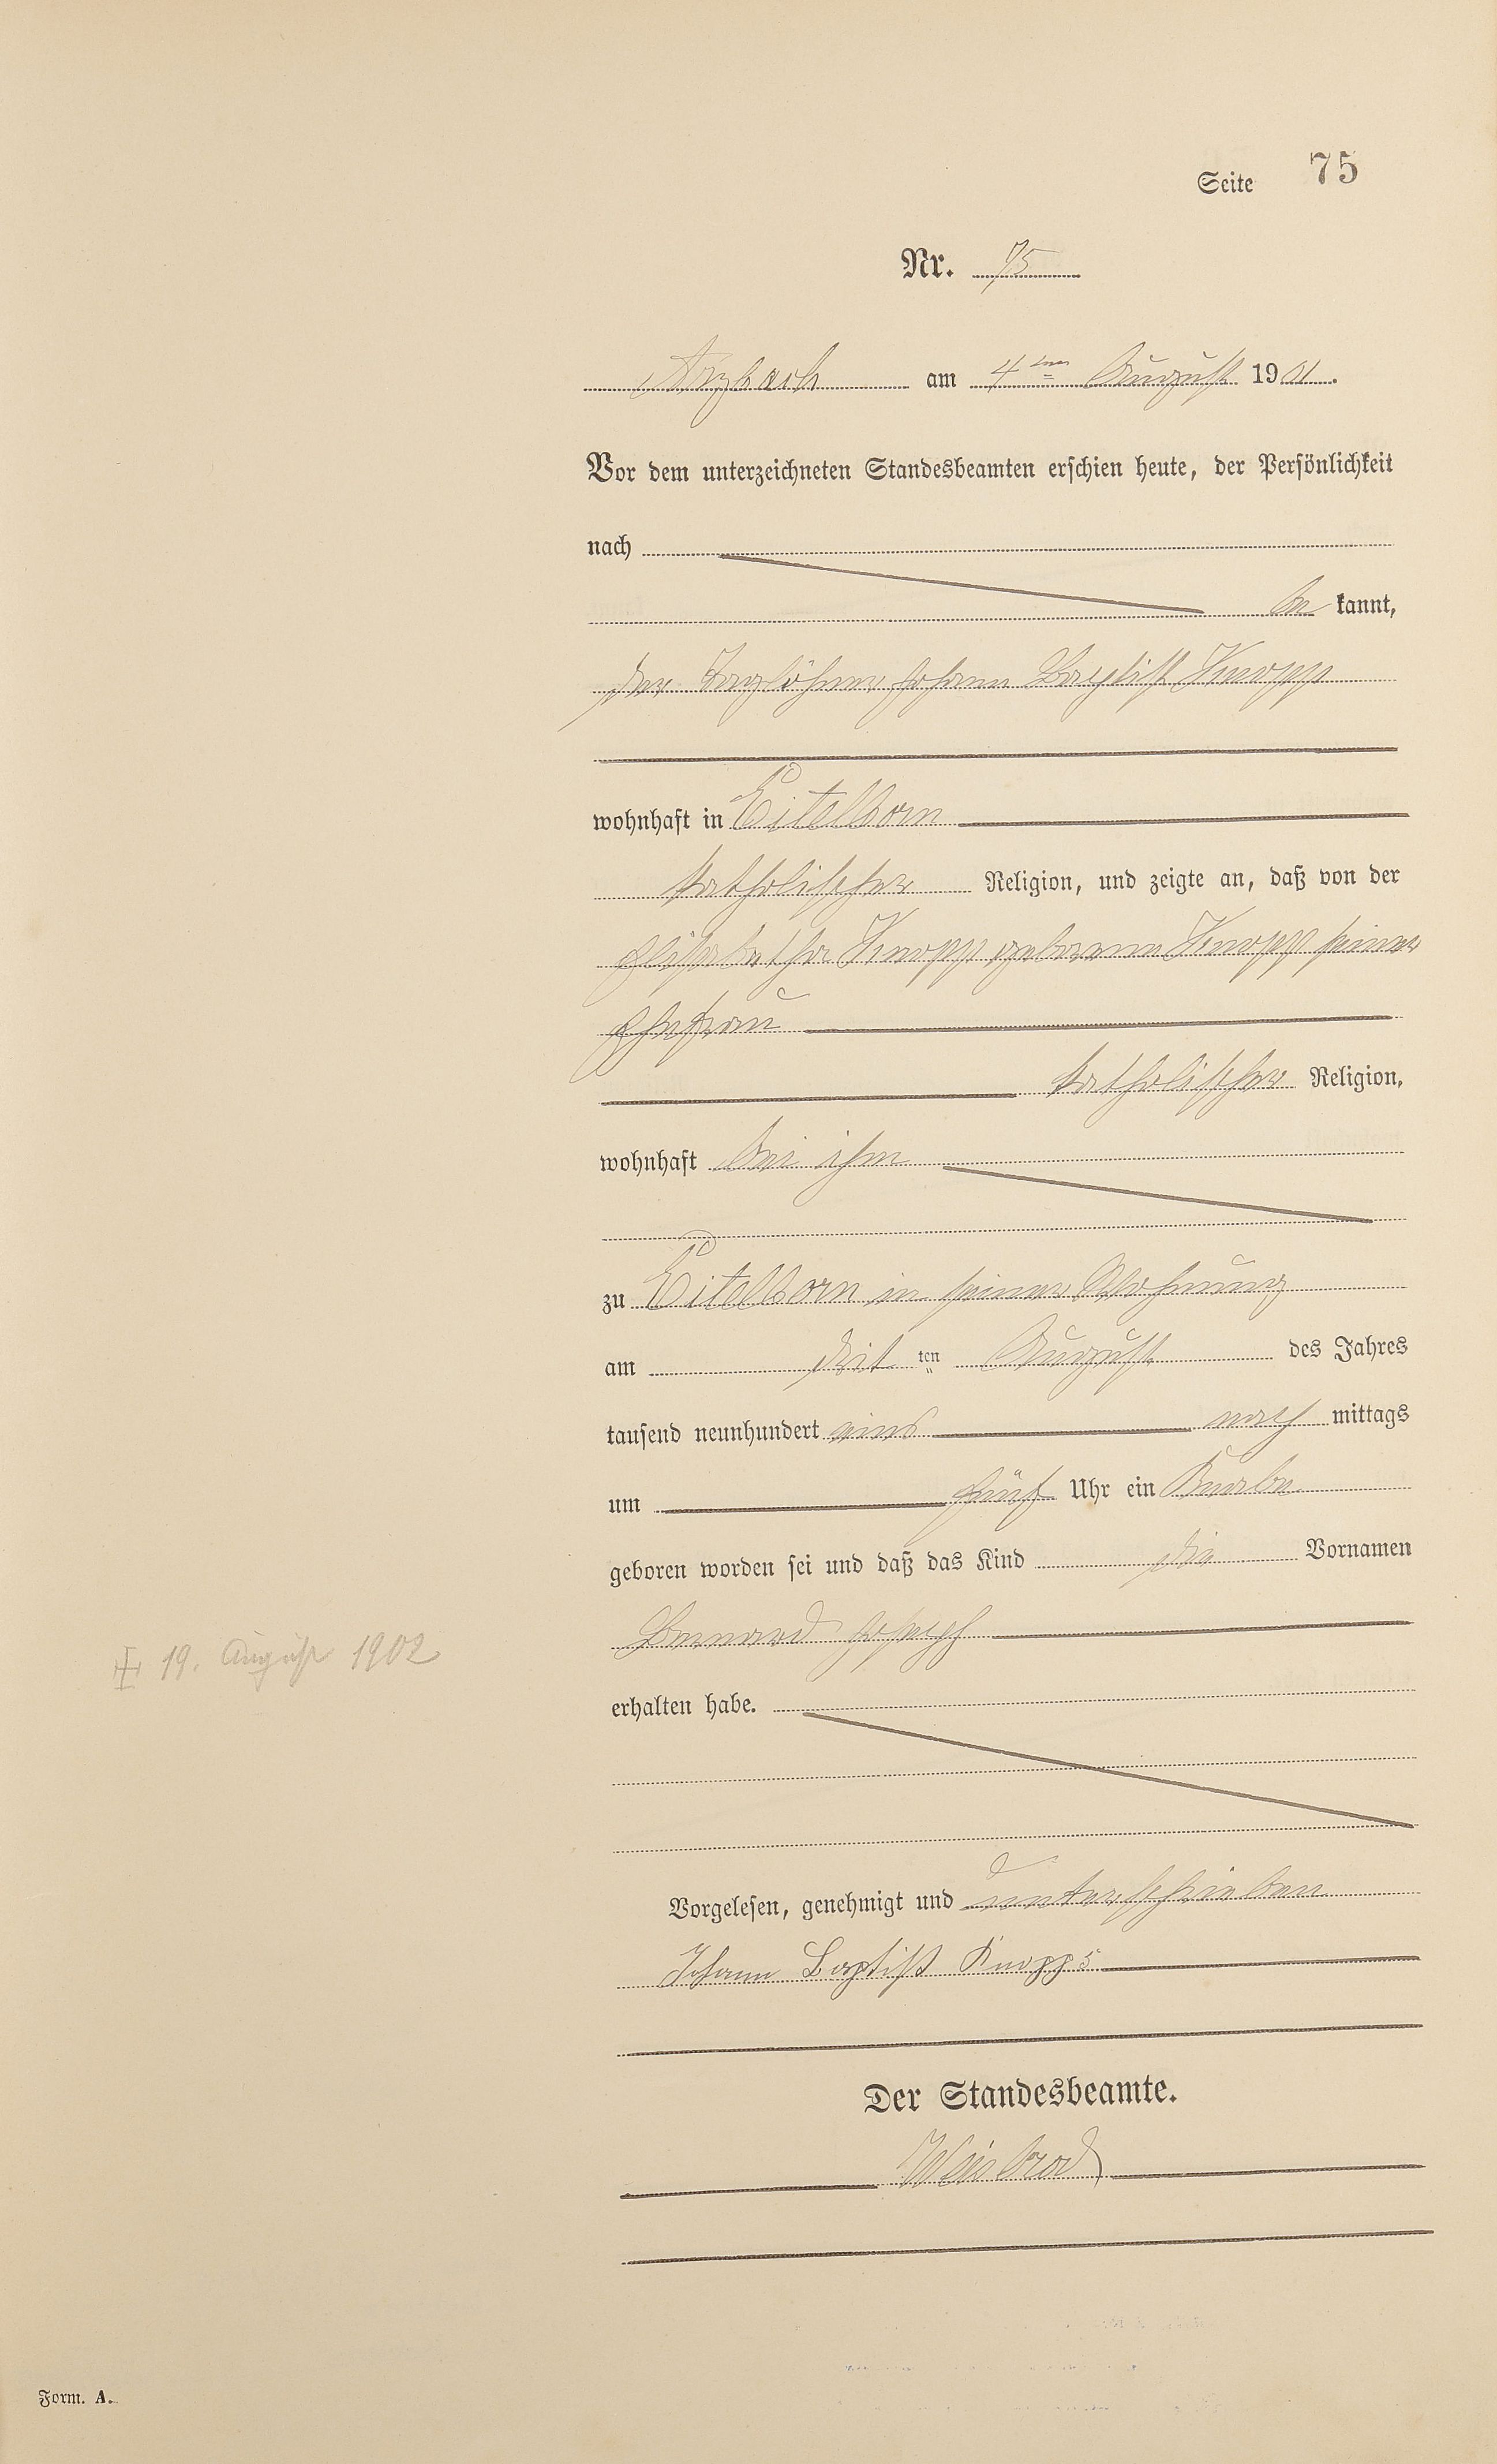 Seite 75
Nr. 75
Arzbach am 4ten August 1901.
Vor dem unterzeichneten Standesbeamten erschien heute, der Persönlichkeit
nach
be kannt,
der Taglöhner Johann Baptist Knopp
wohnhaft in Eitelborn
katholischer Religion, und zeigte an, daß von der
Elisabetha Knopp geborene Knopp seiner
Ehefrau
katholischer Religion,
wohnhaft bei ihm
zu Eitelborn in seiner Wohnung
am ten August des Jahres
tausend neunhundert eins nach mittags
um fünf Uhr ein Knabe
geboren worden sei und daß das Kind die Vornamen
Bernard Joseph
‡ 19. August 1902
erhalten habe.
Vorgelesen, genehmigt und unterschrieben
Johann Baptist Knopp 5
Der Standesbeamte.
Weisbrod
Form. A.